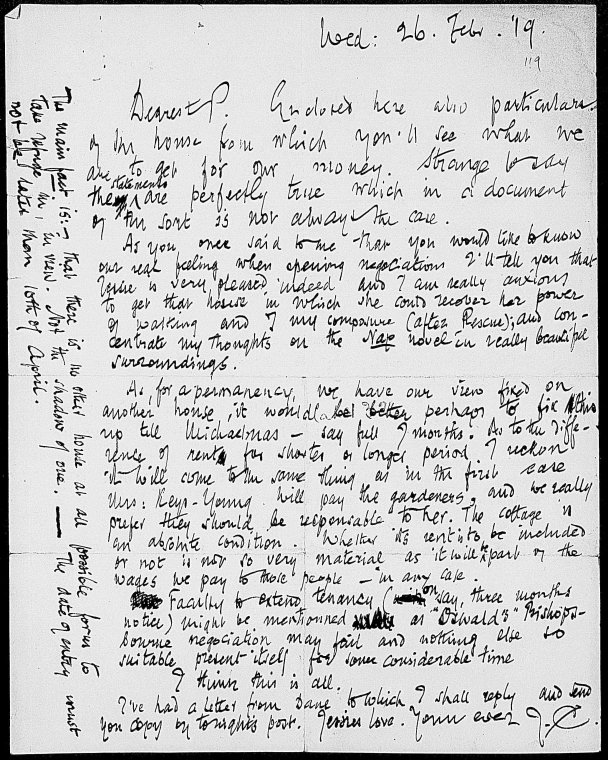 Wed: 26. Febr. '19.
119
Dearest P. Enclosed here also particulars
of the house from which you'll see what we
are to get for our money. Strange to say
the statements are perfectly true which in a document
of this sort is not always the case.
As you once said to me that you would like to know
our real feeling when opening negociations I'll tell you that
Jessie is very pleased indeed and I am really anxious
to get that house in which she could recover her power
of walking and I my composure (after Rescue); and con-
centrate my thoughts on the Nap novel in really beautiful
surroundings.
As, for a permanency, we have our view fixed on
another house, it would be better perhaps to fix this
up till Michaelmas — say full 7 months. As to the diffe-
rence of rent for shorter or longer period I reckon
it will come to the same thing as in the first case
Mrs: Keys-Young will pay the gardeners, and we really
prefer they should be responsable to her. The cottage is
an absolute condition. Whether its rent is to be included
or not is not so very material as it will be part of the
wages we pay to those people — in any case.
Faculty to extend tenancy (on say, three months
notice) might be mentionned as "Oswald's" Bishops-
bourne negociation may fail and nothing else so
suitable present itself for some considerable time
I think this is all.
I've had a letter from Dane to which I shall reply and send
you copy by tonights post. Jessies love. Yours ever J. C.
The main fact is:— that there is no other house at all possible for us to
take refuge in, in view. Not the shadow of one. — The date of entry must
not be later than 10th of April.